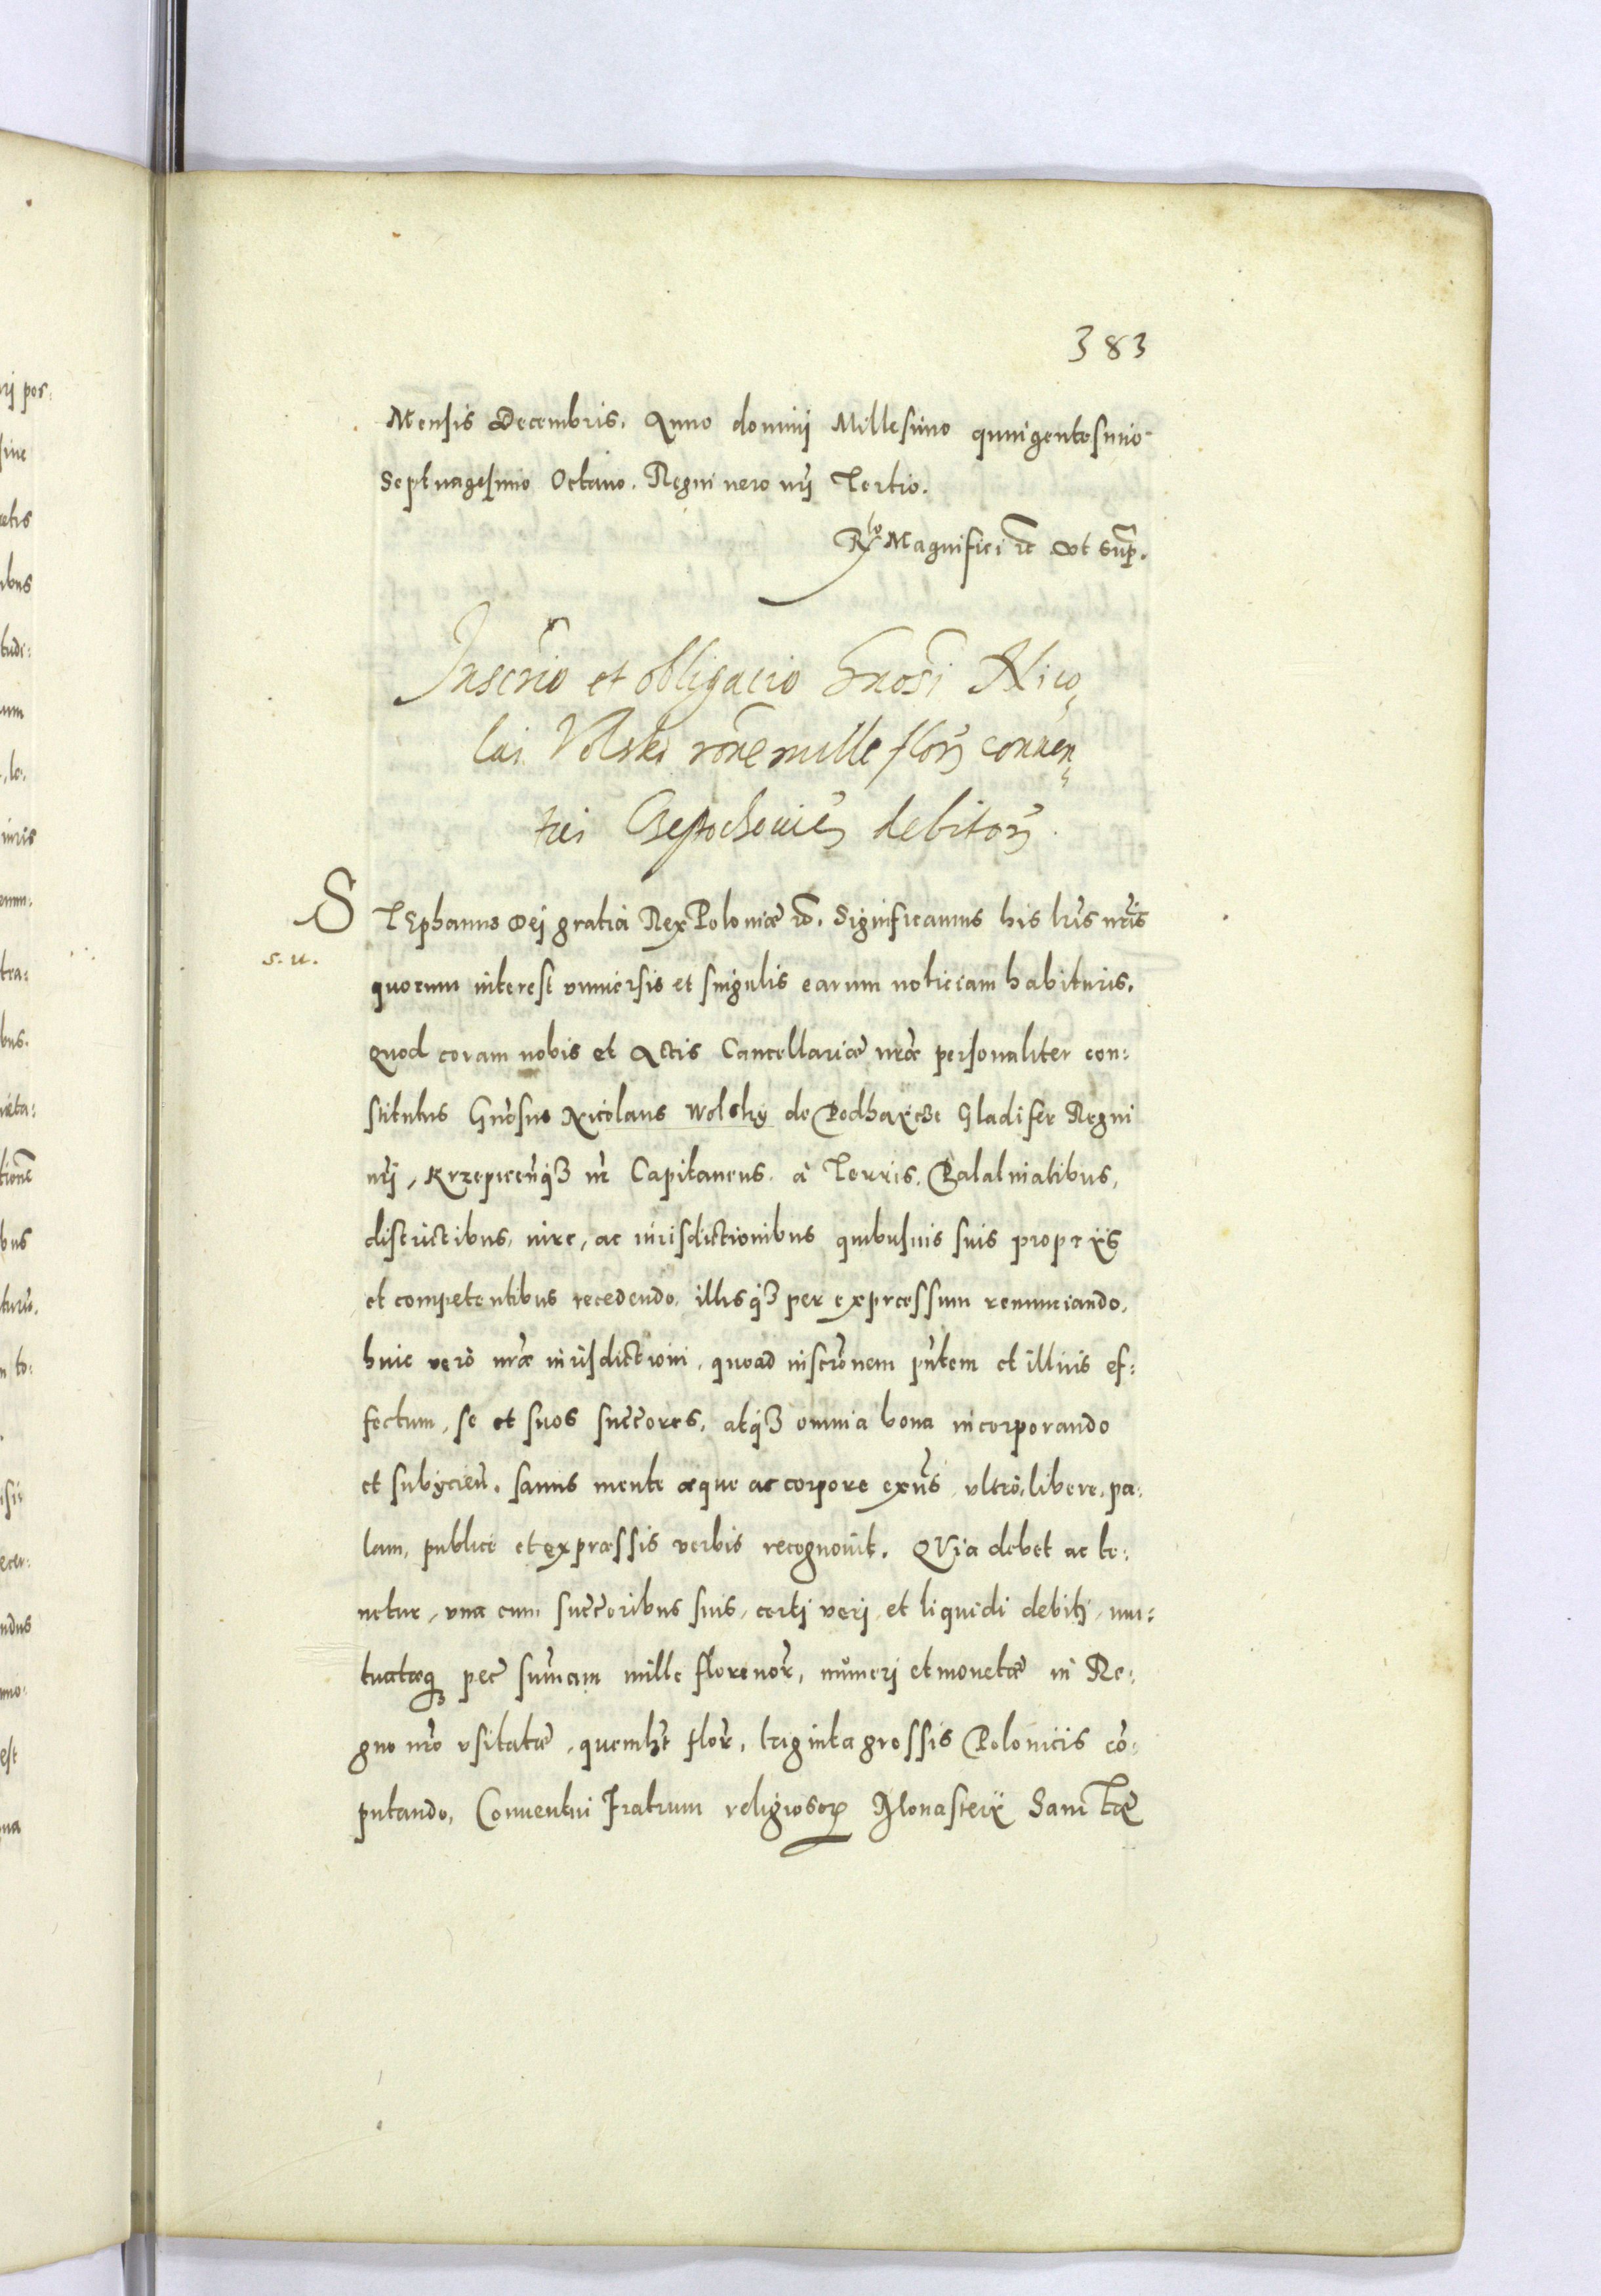 383
Mensis Decembris. Anno dominij Millesimo quingentesimo
Septuagesimo Octauo. Regni uero nrj Tertio.
Rlo Magnifici etc vt supr.
Inscrio et obligacio Gnosi Nico
lai Volski rone mille flor conuen
tui Cestochouien debitor.
STEphanus Dej gratia Rex Poloniæ etc. Significamus his lris nris
s. u.
quorum interest vniuersis et singulis earum noticiam habituris.
Quod coram nobis et Actis Cancellariæ nræ personaliter con:
stitutus Gnosus Nicolaus Wolsky de Podhaycze Gladifer Regni
nrj, Krzepicenqз nr Capitaneus. à Terris. Palatinatibus,
districtibus, iure, ac iurisdictionibus quibusuis suis proprijs
et competentibus recedendo, illisqз per expressum renunciando,
huic verò nræ iurisdictioni, quoad inscronem pntem et illius ef:
fectum, se et suos succores, atqз omnia bona incorporando
et subijcien. sanus mente æque ac corpore exns, vltrò, libere, pa:
lam, publicè et expræssis verbis recognouit. QVia debet ac te:
netur, vna cum succoribus suis, certj verj et liquidi debitj, mu:
tuatæqз pec sumam mille florenor, numerj et monetæ in Re:
gno nro vsitatæ, quemlt flor, triginta grossis Polonicis co:
putando, Conuentui Fratrum religiosor Monasterij Sanctæ